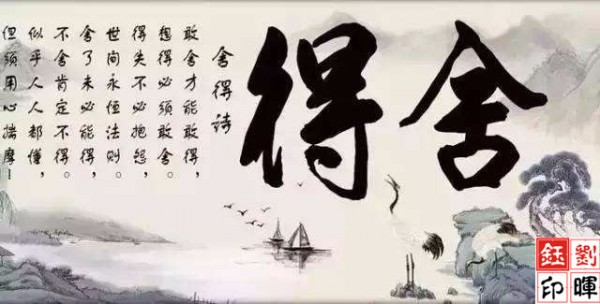 舍得
舍得诗
敢舍才能敢得，
想得必须敢舍。
得失不必抱怨，
世间永恒法则。
舍了未必能得，
不舍肯定不得。
似乎人人都懂，
但须用心揣摩！
劉暉
鈺印